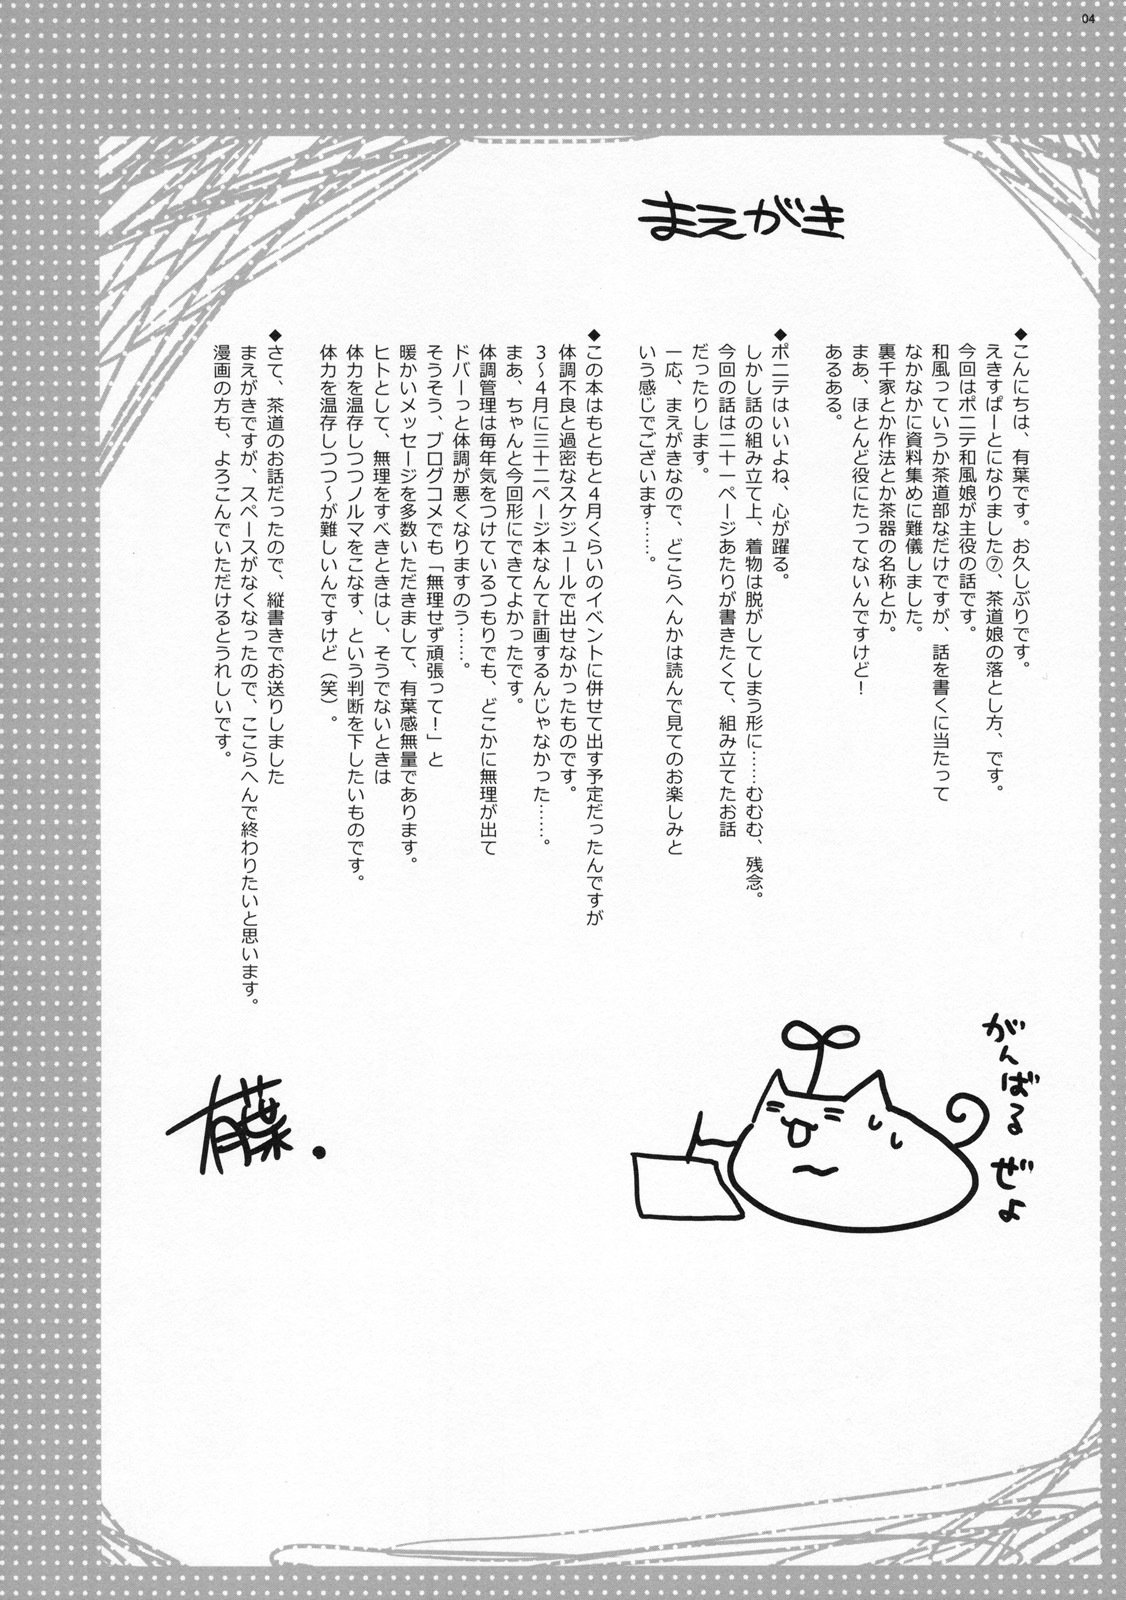 04
まえがき
◆こんにちは、有葉です。お久しぶりです。
えきすぱーとになりました⑦、茶道娘の落とし方、です。
今回はポニテ和風娘が主役の話です。
和風っていうか茶道部なだけですが、話を書くに当たって
なかなかに資料集めに難儀しました。
裏千家とか作法とか茶器の名称とか。
まあ、ほとんど役にたってないんですけど！
あるある。
◆ポニテはいいよね、心が躍る。
しかし話の組み立て上、着物は脱がしてしまう形に……むむむ、残念。
今回の話は二十一ページあたりが書きたくて、組み立てたお話
だったりします。
一応、まえがきなので、どこらへんかは読んで見てのお楽しみと
いう感じでございます……。
◆この本はもともと４月くらいのイベントに併せて出す予定だったんですが
体調不良と過密なスケジュールで出せなかったものです。
３〜４月に三十二ページ本なんて計画するんじゃなかった……。
まあ、ちゃんと今回形にできてよかったです。
体調管理は毎年気をつけているつもりでも、どこかに無理が出て
ドバーっと体調が悪くなりますのう……。
そうそう、ブログコメでも「無理せず頑張って！」と
暖かいメッセージを多数いただきまして、有葉感無量であります。
ヒトとして、無理をすべきときはし、そうでないときは
体力を温存しつつノルマをこなす、という判断を下したいものです。
体力を温存しつつ〜が難しいんですけど（笑）。
◆さて、茶道のお話だったので、縦書きでお送りしました
まえがきですが、スペースがなくなったので、ここらへんで終わりたいと思います。
漫画の方も、よろこんでいただけるとうれしいです。
がんばるぜよ
有葉．